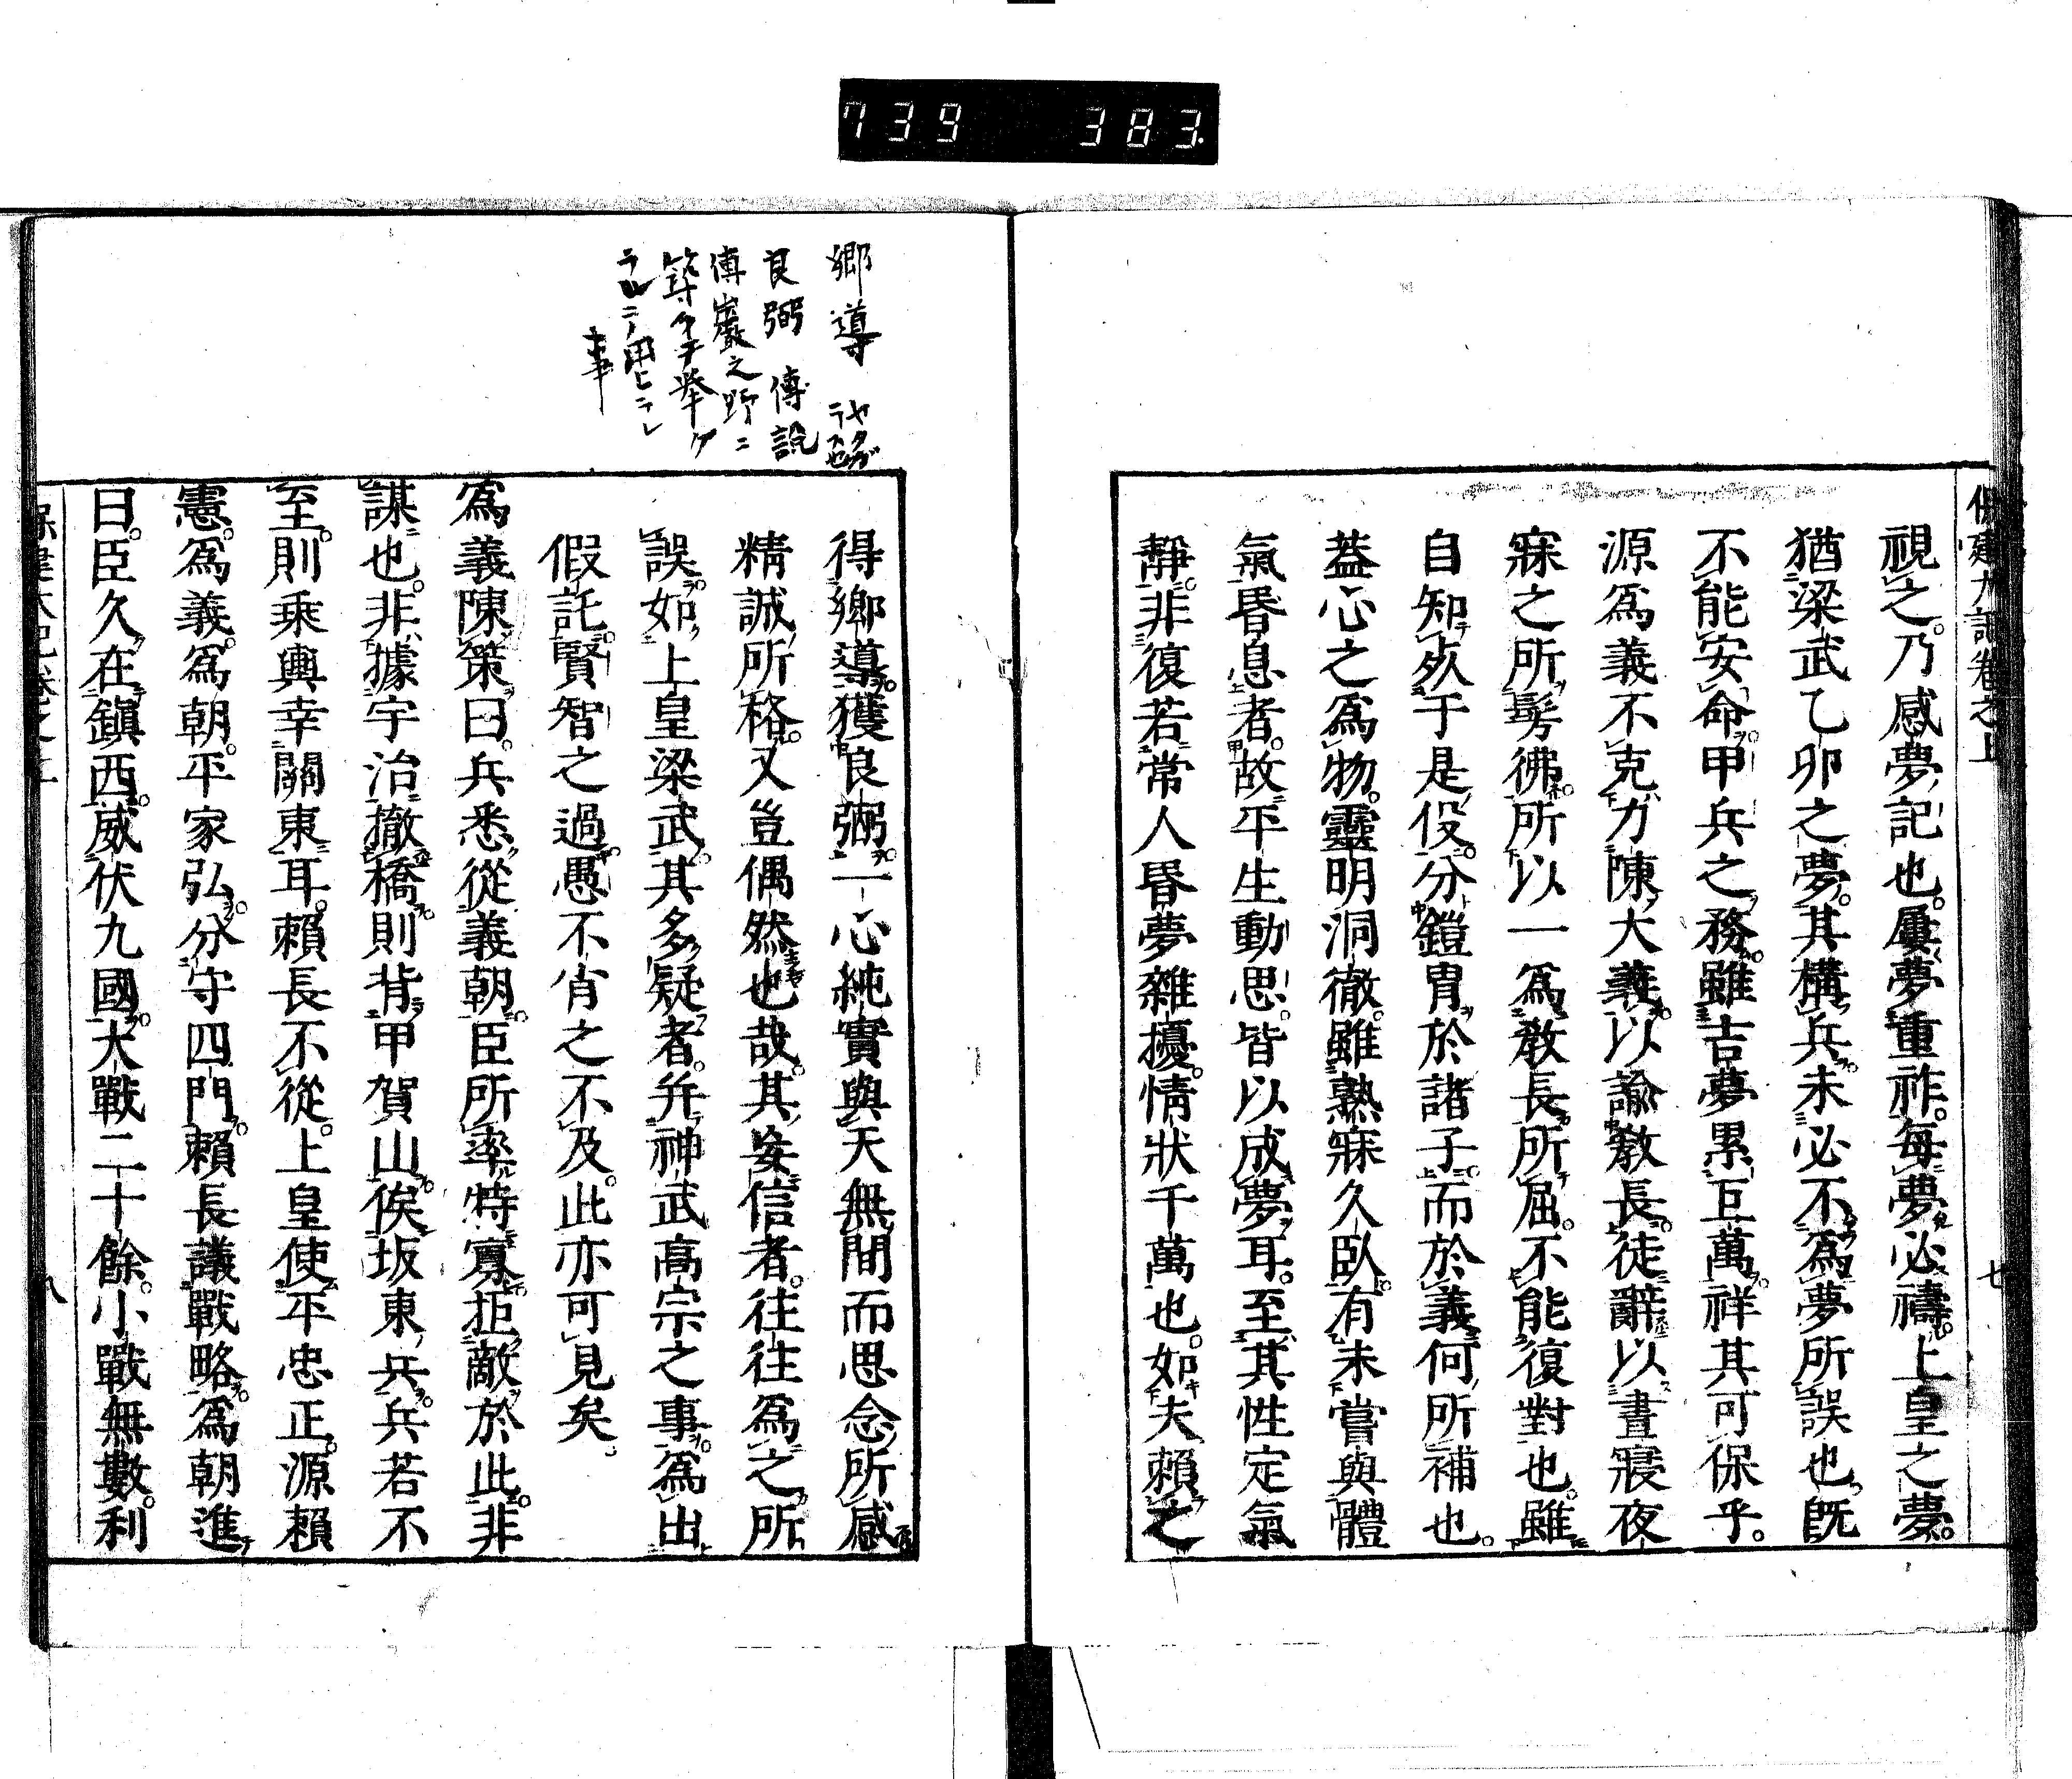 739 383
保建大記卷之上 七
視之乃感夢記也屢夢重祚每夢必禱上皇之夢
猶梁武乙卯之夢其構兵未必不爲夢所誤也既
不能安命甲兵之務雖吉夢累巨萬祥其可保乎
源爲義不克力陳大義以諭敎長徒辭以晝寢夜
寐之所髣彿所以一爲敎長所屈不能復對也雖
自知死于是役分鎧冑於諸子而於義何所補也
蓋心之爲物靈明洞徹雖熟寐久臥有未嘗與體
氣昏息者故平生動思皆以成夢耳至其性定氣
靜非復若常人昏夢雜擾情狀千萬也如夫賴之
鄉導
良弼 傅說
傅巖之野ニ
築
事
得鄉導獲良弼一心純實與天無間而思念所感
精誠所格又豈偶然也哉其妄信者往往爲之所
誤如上皇梁武其多疑者幷神武高宗之事爲出
假託賢智之過愚不肖之不及此亦可見矣
爲義陳策曰兵悉從義朝臣所率特寡拒敵於此非
謀也非據宇治撤橋則背甲賀山俟坂東兵兵若不
至則乘輿幸關東耳賴長不從上皇使平忠正源賴
憲爲義爲朝平家弘分守四門賴長議戰略爲朝進
曰臣久在鎭西威伏九國大戰二十餘小戰無數利
八